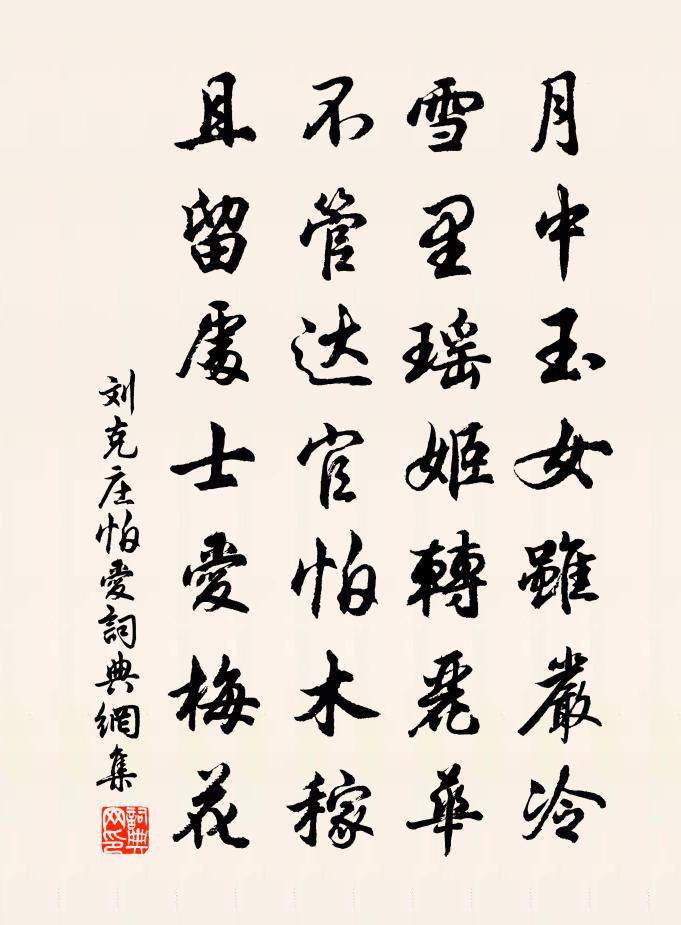 月中玉女雖嚴冷
雪里瑶姬轉麗華
不管达官怕木稼
且留處士愛梅花
刘克庄怕愛詞典網集
詞典
网印